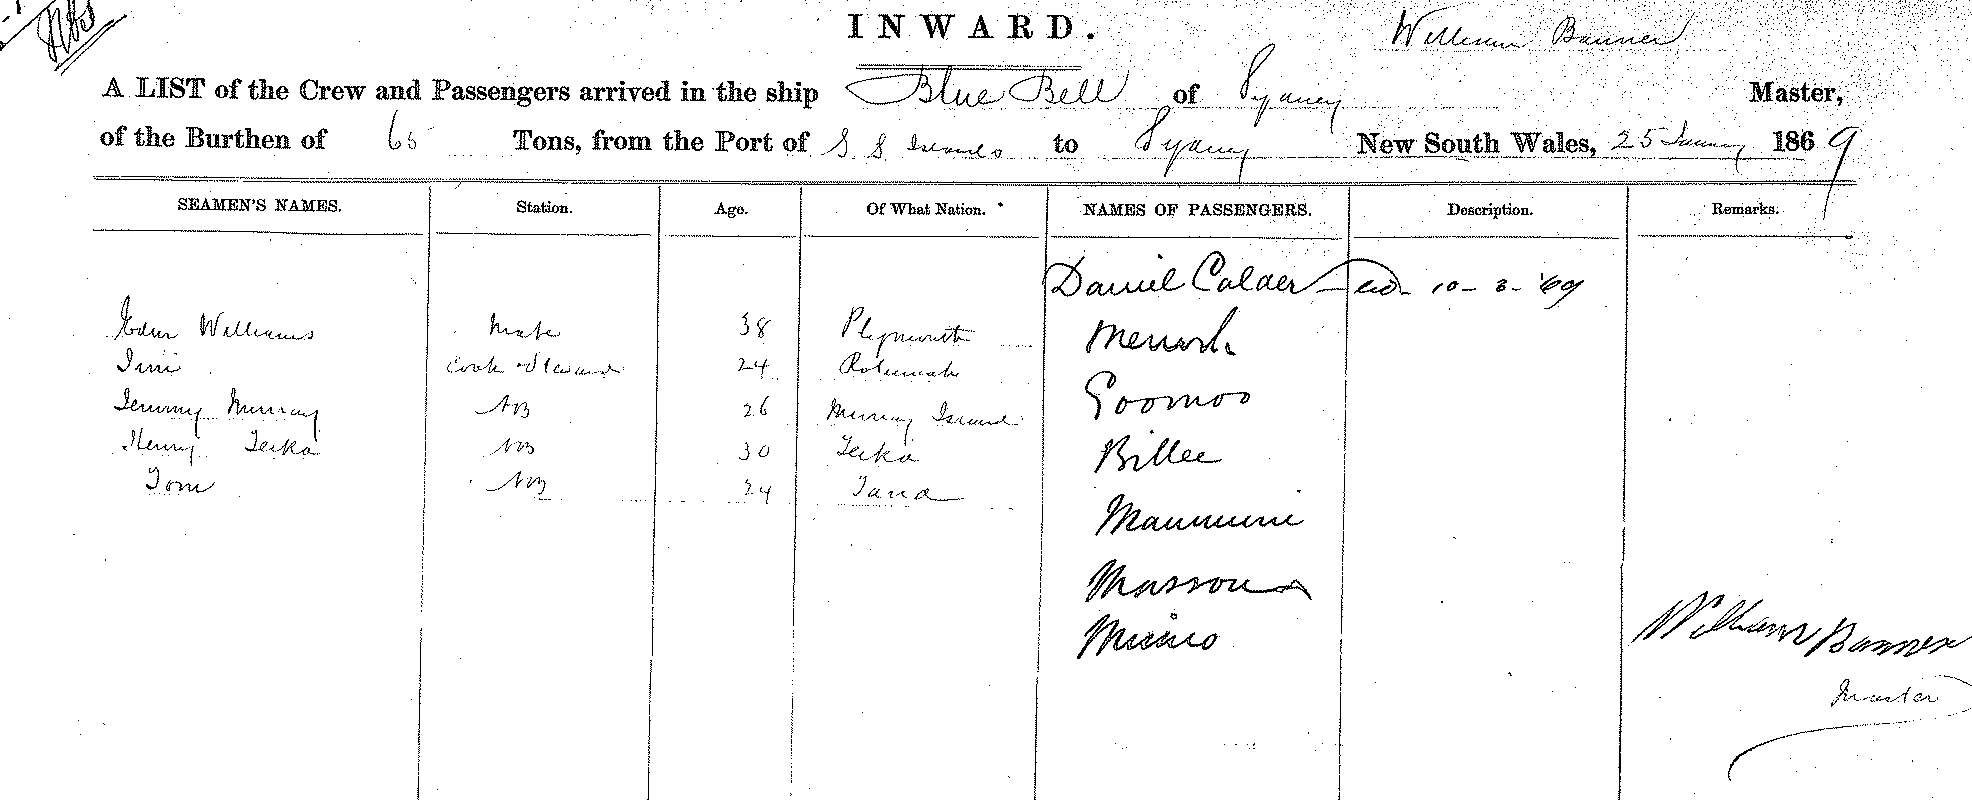 INWARD.
William Banner
A LIST of the Crew and Passengers arrived in the ship Blue Bell of Sydney Master,
of the Burthen of 65 Tons, from the Port of S S Islands to Sydney New South Wales, 25 January 1869
SEAMEN'S NAMES. Station. Age. Of What Nation. NAMES OF PASSENGERS. Description. Remarks.
Daniel Calder 10-3-'69
Edwr Williams Mate 38 Plymouth
Jim Cook & Steward 24 Rotumah
Jemmy Murray AB 26 Murray Island
Henry Terka AB 30 Terka
Tom AB 24 Tana
Goomoo
Billee
Maumumi
Massoua
William Banner
Master